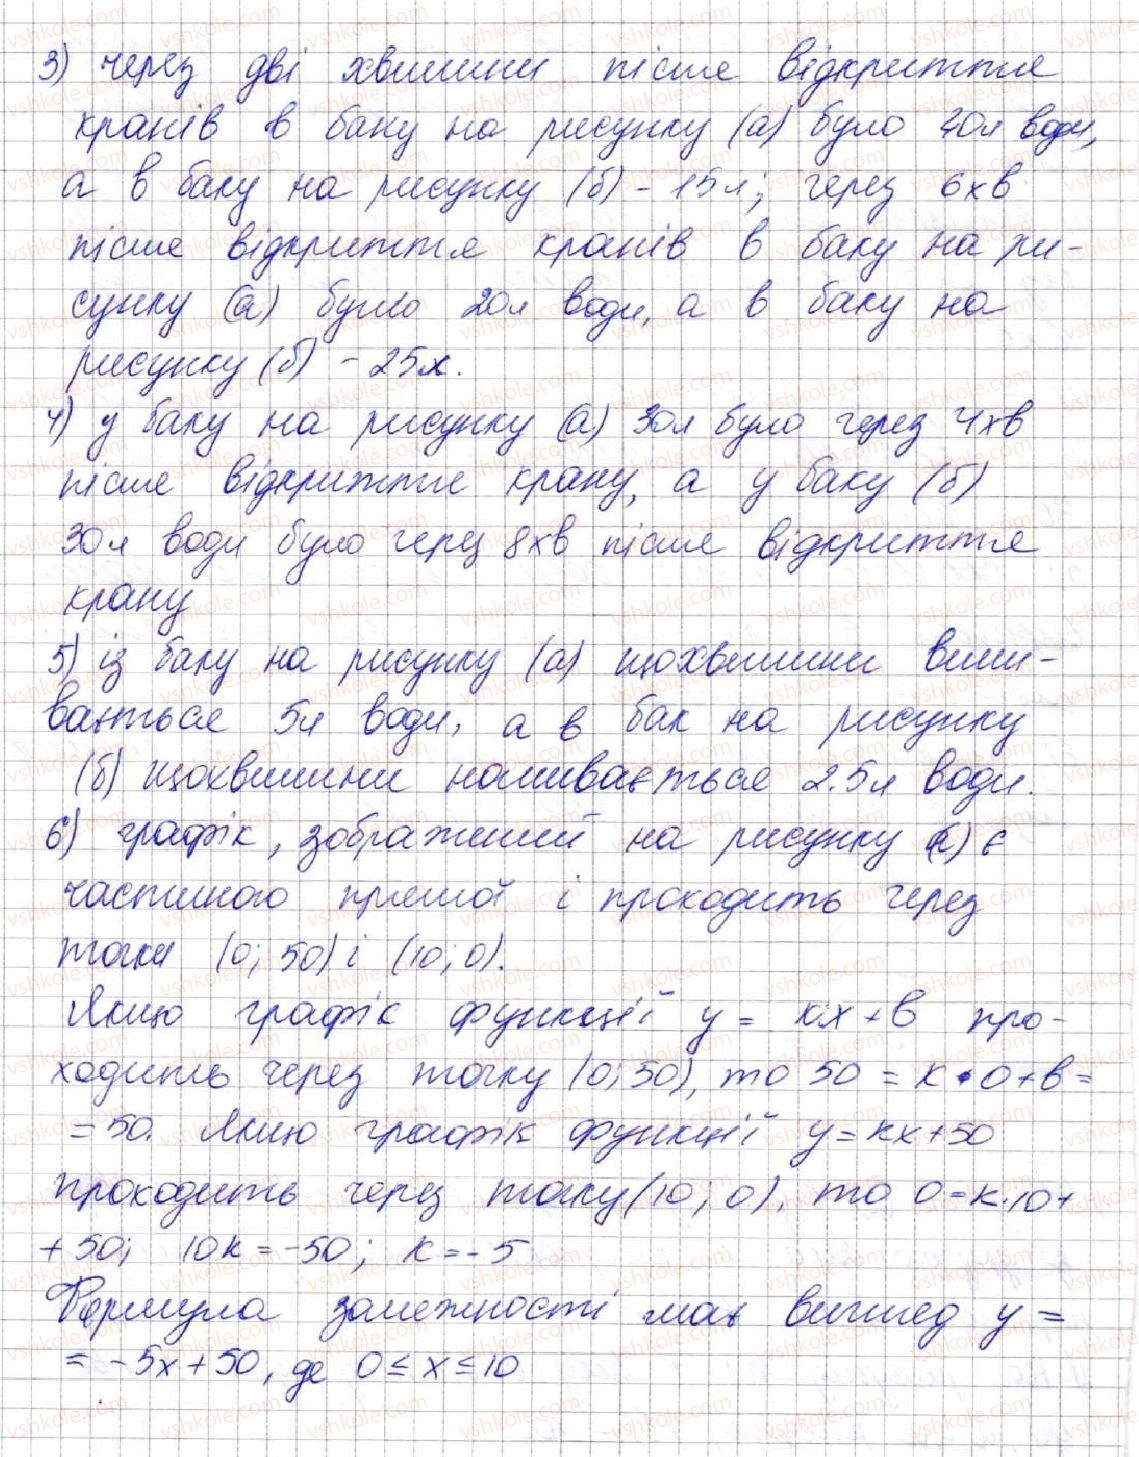 3) через дві хвилини після відкриття
кранів в баку на рисунку (а) було 40л води,
а в баку на рисунку (б) - 15л; через 6хв
після відкриття кранів в баку на ри-
сунку (а) було 20л води, а в баку на
рисунку (б) - 25л.
4) у баку на рисунку (а) 30л було через 4хв
після відкриття крану, а у баку (б)
30л води було через 8хв після відкриття
крану
5) із баку на рисунку (а) щохвилини вили-
вається 5л води, а в бак на рисунку
(б) щохвилини наливається 2.5л води.
6) графік, зображений на рисунку (а) є
частиною прямої і проходить через
точки (0; 50) і (10; 0).
Якщо графік функції y = kx + b про-
ходить через точку (0; 50), то 50 = k • 0 + b =
= 50. Якщо графік функції y = kx + 50
проходить через точку (10; 0), то 0 = k · 10 +
+ 50; 10k = -50; k = -5
Формула залежності має вигляд y =
= -5x + 50, де 0 ≤ x ≤ 10